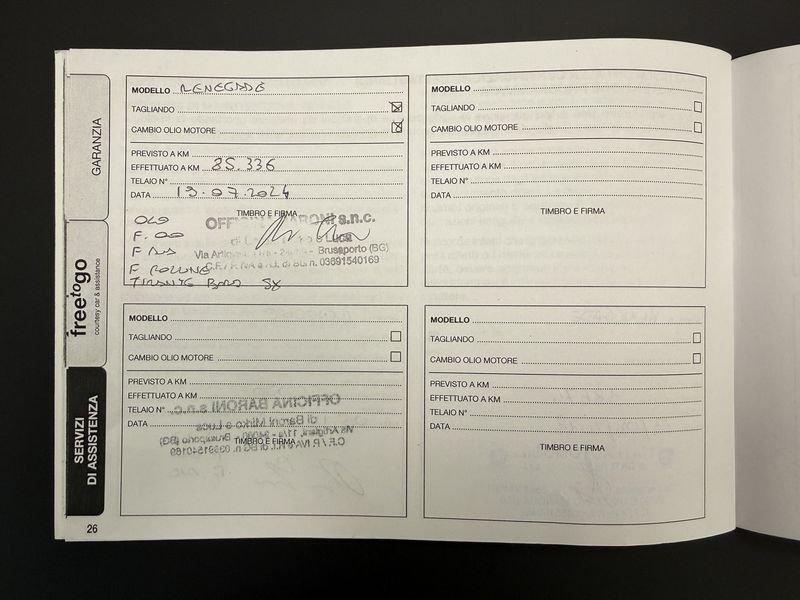 GARANZIA
freetogo
courtesy car & assistance
SERVIZI
DI ASSISTENZA
26
MODELLO RENEGADE
TAGLIANDO
CAMBIO OLIO MOTORE
PREVISTO A KM
EFFETTUATO A KM 85.336
TELAIO N°
DATA 19.07.2024
TIMBRO E FIRMA
OFFICINA BARONI s.n.c.
Via Artigiani Brusaporto (BG)
C.F./P. IVA e R.I. di BG n. 03691540169
OLIO
F. OLIO
F
F POLLINE
TIRANTE BARO SX
MODELLO
TAGLIANDO
CAMBIO OLIO MOTORE
PREVISTO A KM
EFFETTUATO A KM
TELAIO N°
DATA
TIMBRO E FIRMA
MODELLO
TAGLIANDO
CAMBIO OLIO MOTORE
PREVISTO A KM
EFFETTUATO A KM
TELAIO N°
DATA
TIMBRO E FIRMA
OFFICINA BARONI s.n.c.
di Baroni Mirko e Luca
Via Artigiani, Brusaporto (BG)
C.F./P. IVA e R.I. di BG n. 03691540169
MODELLO
TAGLIANDO
CAMBIO OLIO MOTORE
PREVISTO A KM
EFFETTUATO A KM
TELAIO N°
DATA
TIMBRO E FIRMA